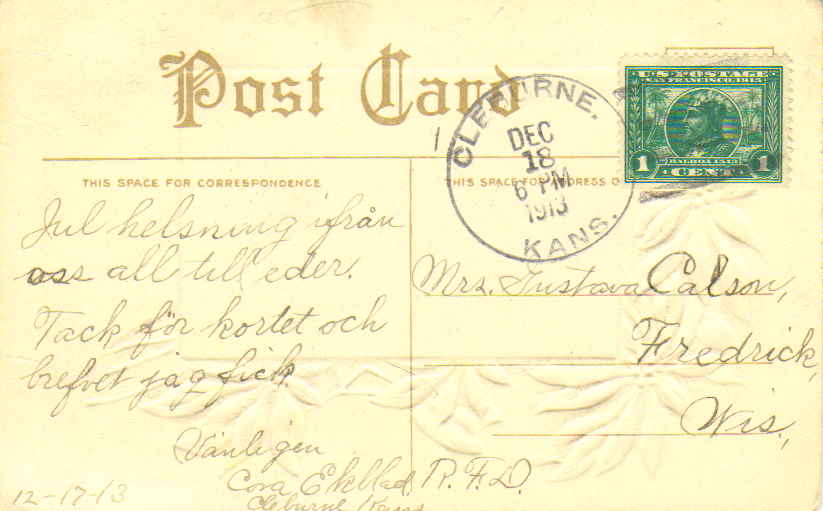 Post Card
CLEBURNE.
DEC
18
6 PM
1913
KANS.
U.S. POSTAGE
SAN FRANCISCO 1915
BALBOA 1513
1 CENT 1
THIS SPACE FOR CORRESPONDENCE
THIS SPACE FOR ADDRESS O
Jul helsning ifrån
oss all till eder.
Tack för kortet och
brefvet jag fick.
Vänligen
Cora Ekblad, R.F.D.
Cleburne Kans
12-17-13
Mrs. Gustava Calson,
Fredrick,
Wis.,